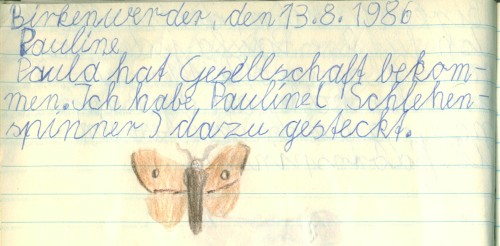 Birkenwerder, den 13.8.1986
Pauline
Paula hat Gesellschaft bekom-
men. Ich habe Pauline( Schlehen-
spinner) dazu gesteckt.